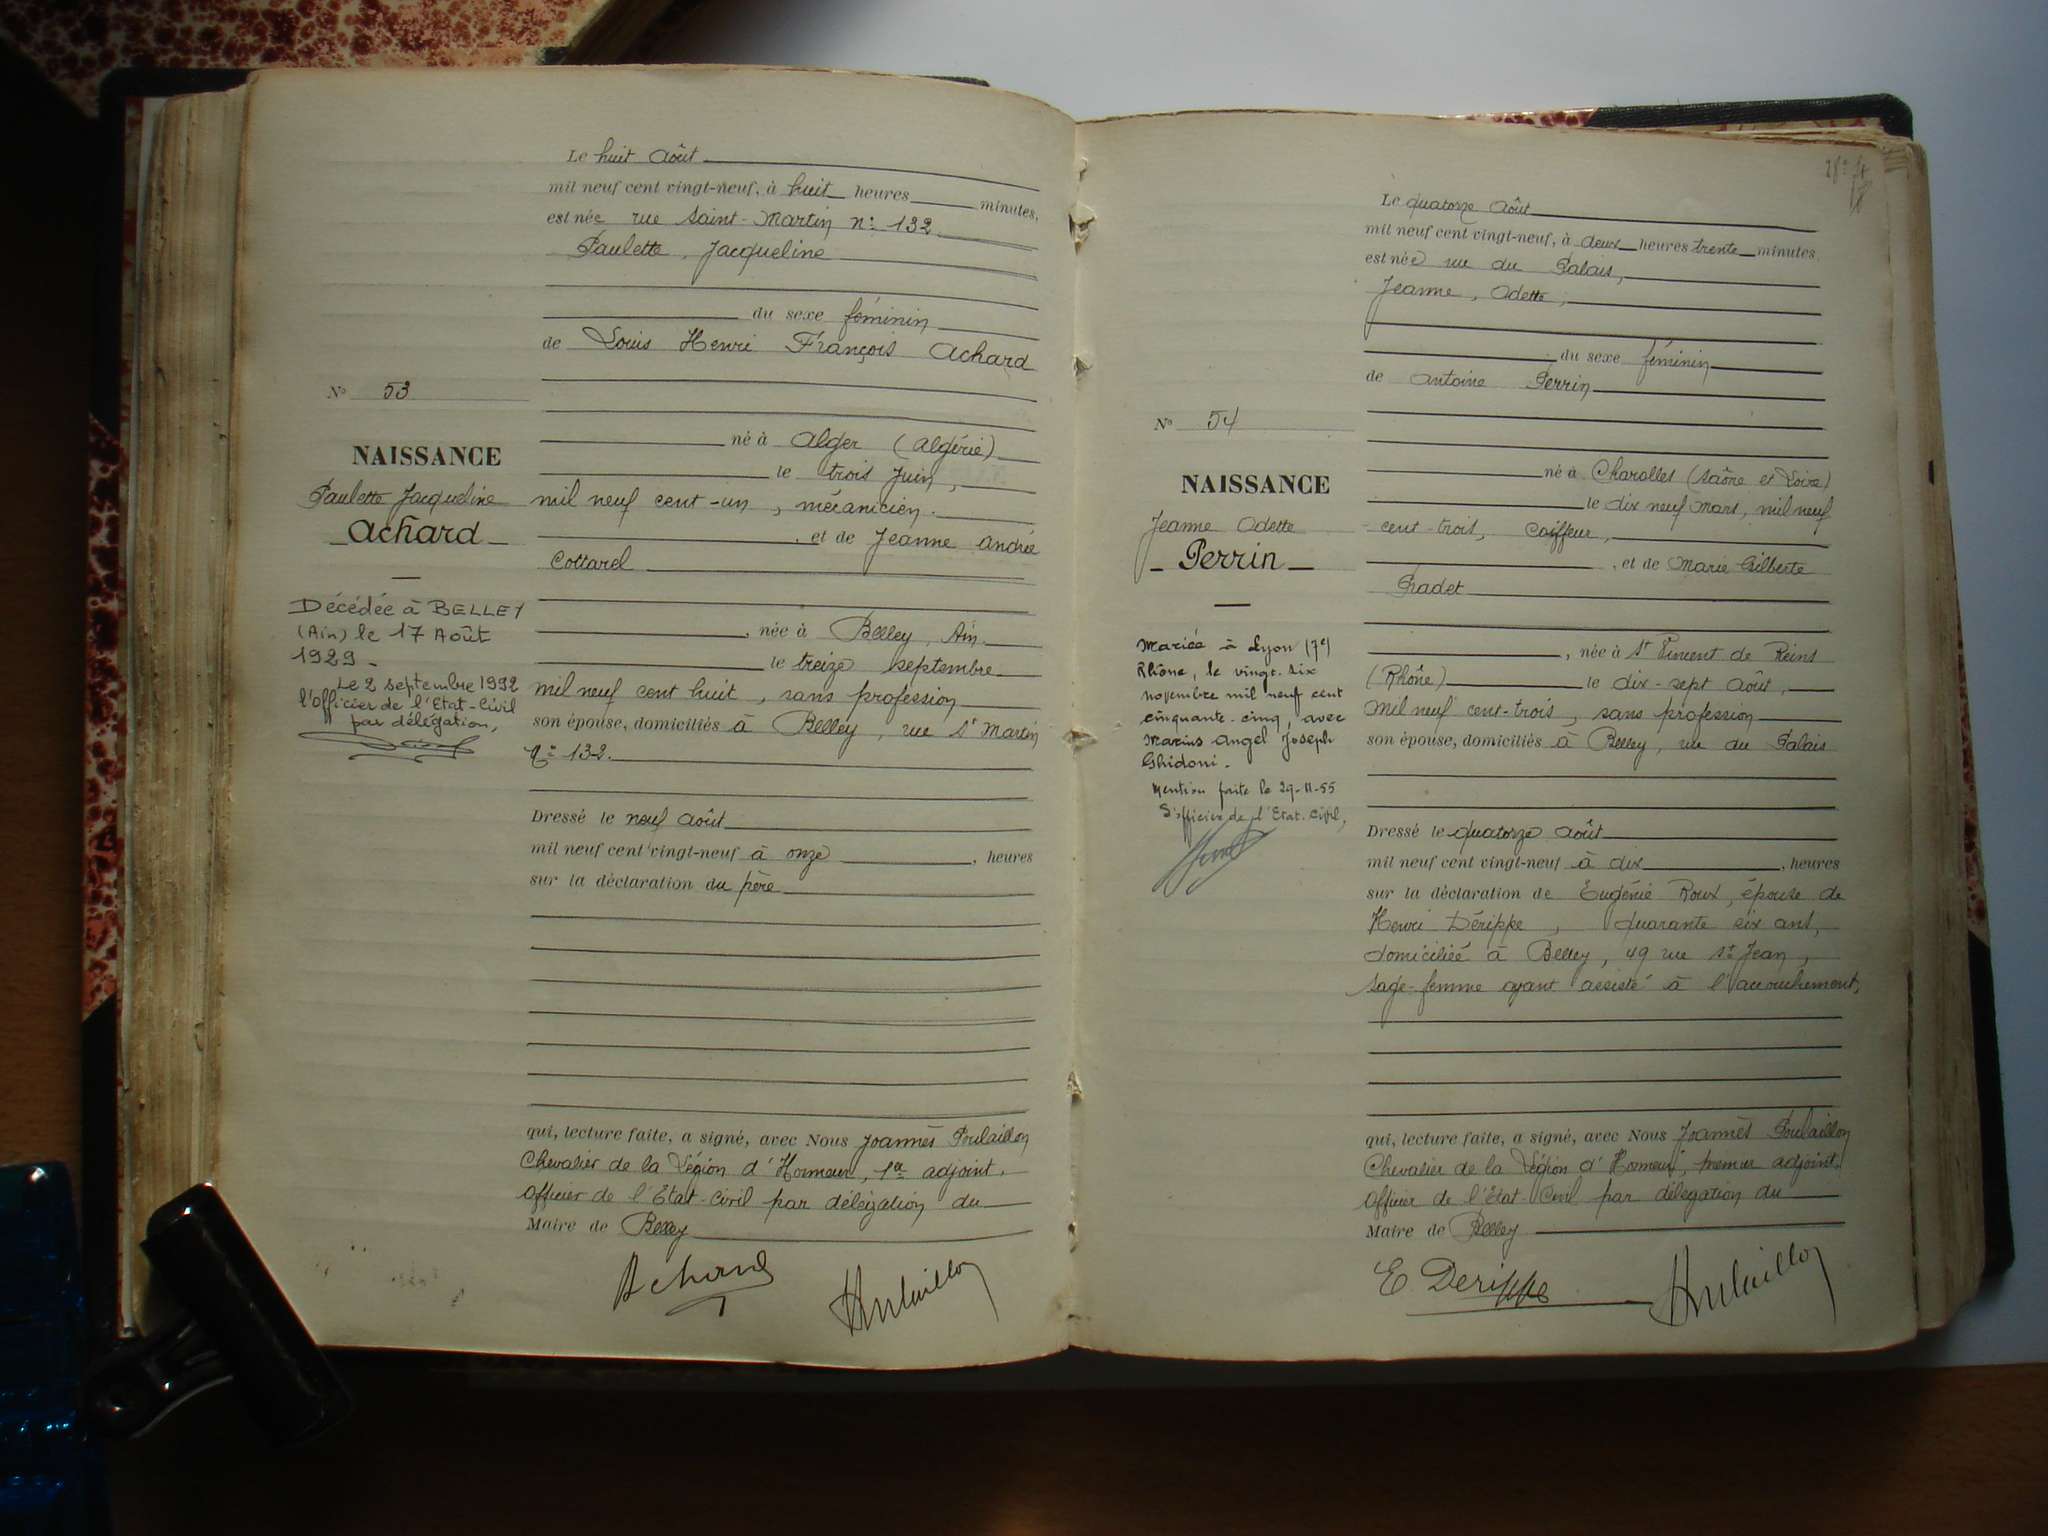 Le huit Août
mil neuf cent vingt-neuf, à huit heures minutes,
est née rue Saint-Martin n° 132
Paulette, Jacqueline
du sexe féminin
de Louis Henri François Achard
N° 53
né à Alger (Algérie)
NAISSANCE
le trois Juin,
Paulette Jacqueline
mil neuf cent-un, mécanicien.
Achard
, et de Jeanne Andrée
Cottarel
Décédée à BELLEY
(Ain) le 17 Août
1929.
, née à Belley, Ain.
le treize septembre
Le 2 septembre 1992
l'Officier de l'Etat-Civil
par délégation,
mil neuf cent huit, sans profession
son épouse, domiciliés à Belley, rue St Martin
n° 132.
Dressé le neuf Août
mil neuf cent vingt-neuf à onze , heures
sur la déclaration du père
qui, lecture faite, a signé, avec Nous Joannès Poulaillon
Chevalier de la Légion d'Honneur, 1er adjoint.
Officier de l'Etat-Civil par délégation du
Maire de Belley
Achard
Poulaillon
Le quatorze Août
mil neuf cent vingt-neuf, à deux heures trente minutes.
est née rue du Palais,
Jeanne, Odette,
du sexe féminin
de Antoine Perrin
N° 54
né à Charolles (Saône et Loire)
NAISSANCE
le dix neuf Mars, mil neuf
Jeanne Odette
cent-trois, coiffeur,
Perrin
, et de Marie Gilberte
Pradet
Mariée à Lyon (7e)
Rhône, le vingt-six
novembre mil neuf cent
cinquante-cinq, avec
Marius Angel Joseph
Ghidoni.
Mention faite le 29-11-55
L'officier de l'Etat-Civil,
, née à St Vincent de Reins
(Rhône) le dix-sept Août,
mil neuf cent-trois, sans profession
son épouse, domiciliés à Belley, rue du Palais
Dressé le quatorze Août
mil neuf cent vingt-neuf à dix , heures
sur la déclaration de Eugénie Roux, épouse de
Henri Dérippe, quarante six ans,
domiciliée à Belley, 49 rue St Jean,
sage-femme ayant assisté à l'accouchement,
qui, lecture faite, a signé, avec Nous Joannès Poulaillon
Chevalier de la Légion d'Honneur, premier adjoint.
Officier de l'Etat-Civil par délégation du
Maire de Belley
E Derippe
Poulaillon